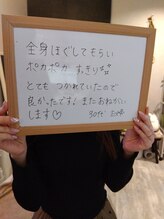 全身ほぐしてもらい
ポカポカ すっきり
とても つかれていたので
良かったです! またおねがい
します♡
30代